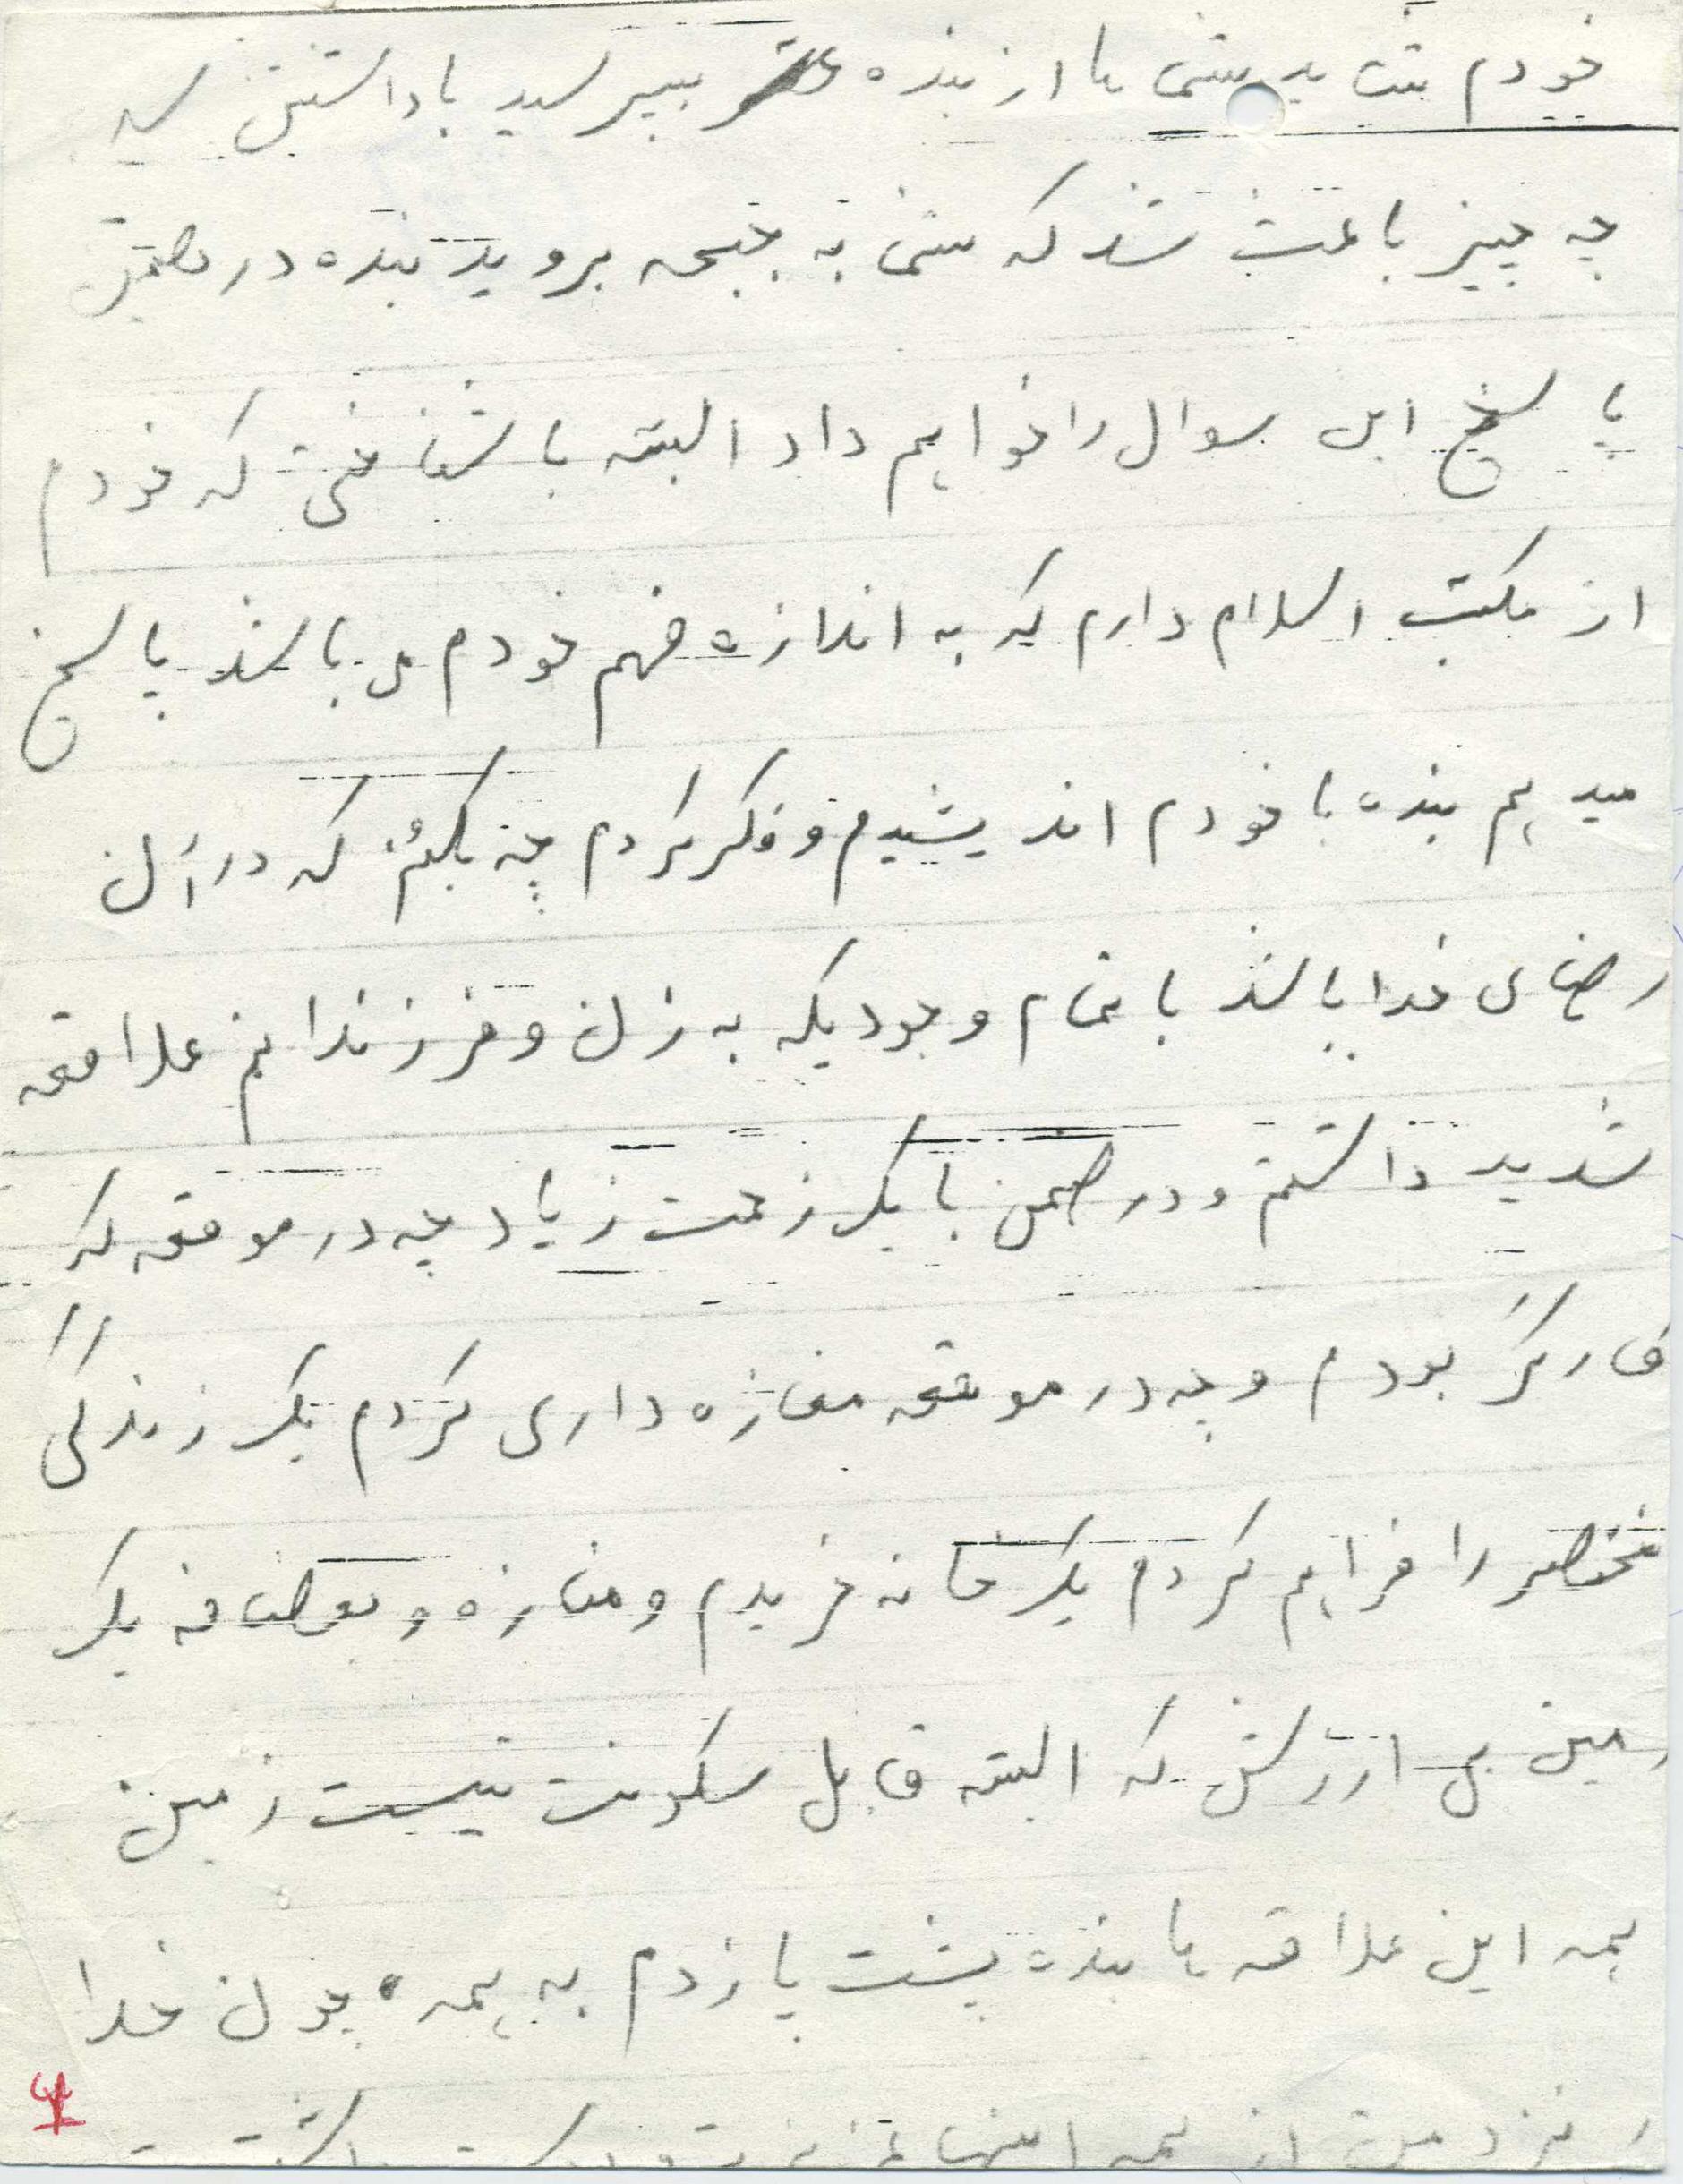 خودم شاید شما ها از بنده بپرسید با داشتن سه
چه چیز باعث شد که شما به جبهه بروید بنده در ضمن
پاسخ این سوال را خواهم داد البته با شناختی که خودم
از مکتب اسلام دارم که به اندازه فهم خودم می باشد پاسخ
میدهم بنده با خودم اندیشیدم و فکر کردم چه بکنم که در آن
رضای خدا باشد با تمام وجودیکه به زن و فرزندانم علاقه
شدید داشتم و در ضمن با یک زحمت زیاد چه در موقعه که
کارگر بودم و چه در موقعه مغازه داری کردم یک زندگی
مختصر را فراهم کردم یک خانه خریدم و مغازه و بعضافه یک
زمین بی ارزش که البته قابل سکونت نیست زمین
همه این علاقه ها بنده پشت پا زدم به همه چون خدا
نزد من از همه اینها
۴